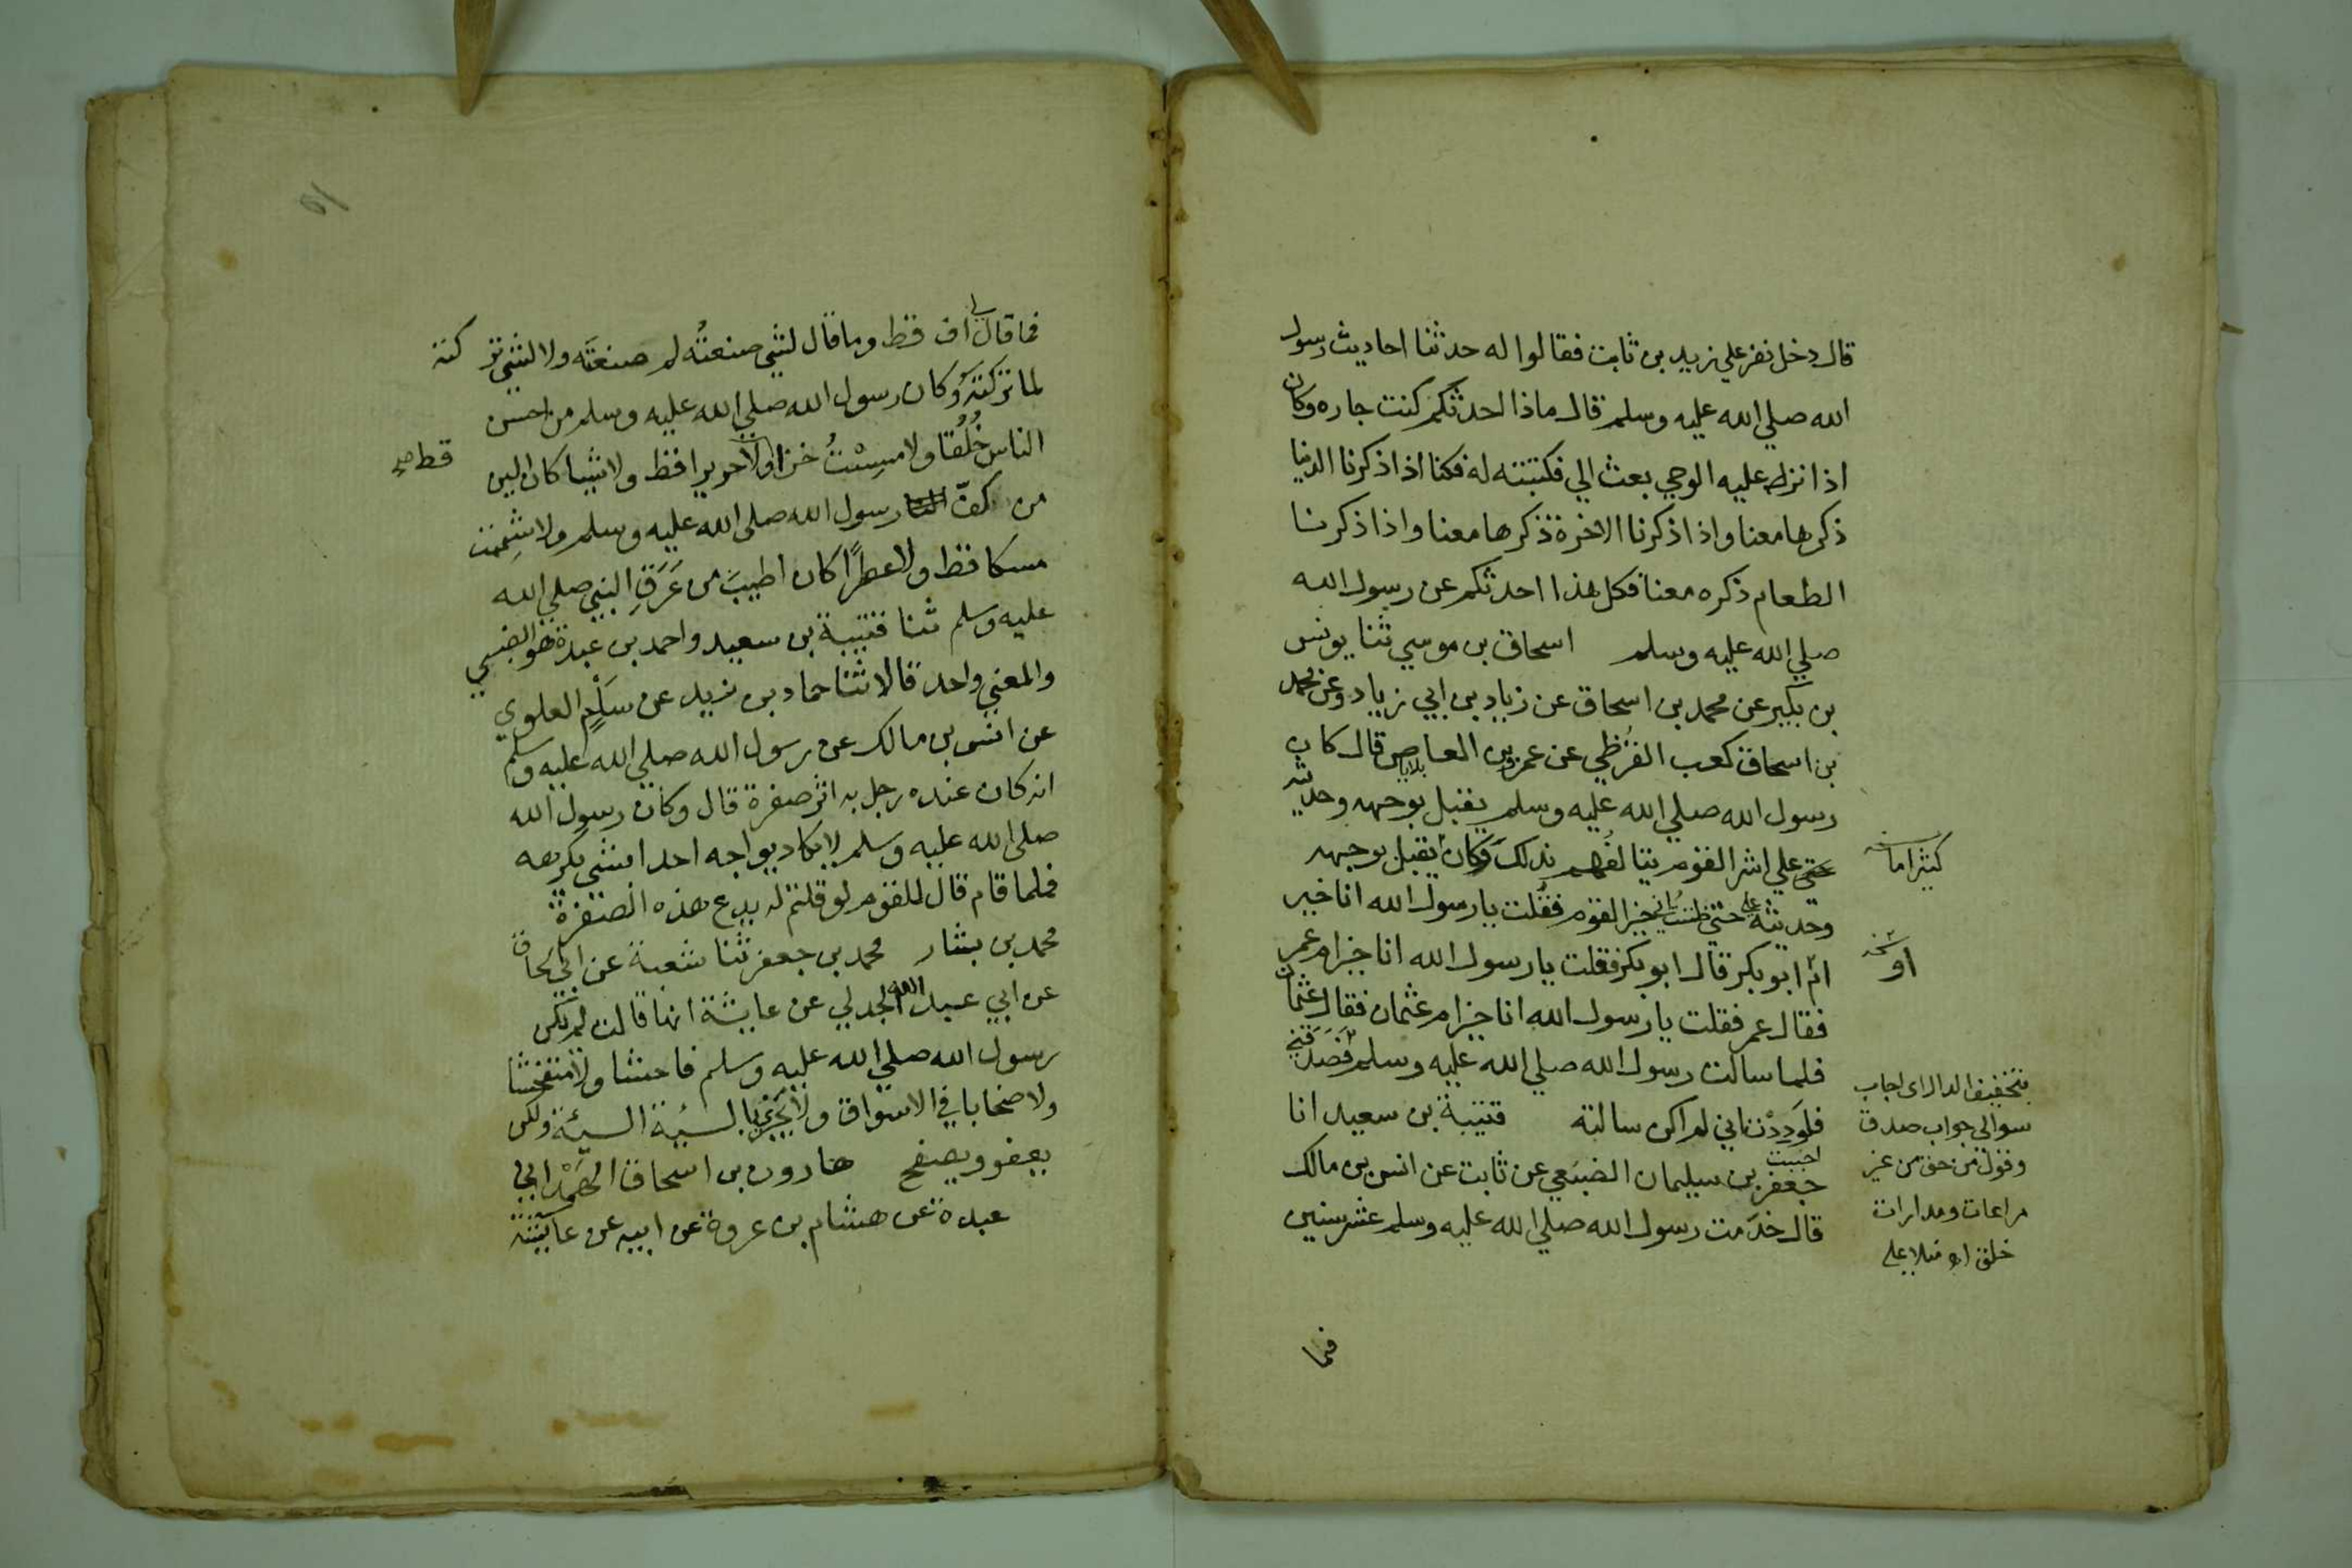 قال دخل نفر علي زيد بن ثابت فقالوا له حدثنا احاديث رسول
الله صلي الله عليه وسلم قال ماذا احدثكم كنت جاره وكان
اذا نزل عليه الوحي بعث الي فكتبته له فكنا اذا ذكرنا الدنيا
ذكرها معنا واذا ذكرنا الاخرة ذكرها معنا واذا ذكرنا
الطعام ذكره معنا فكل هذا احدثكم عن رسول الله
صلي الله عليه وسلم اسحاق بن موسي ثنا يونس
بن بكير عن محمد بن اسحاق عن زياد بن ابي زياد وعن محمد
بن اسحاق كعب القرظي عن عمرو بن العاص قال كان
رسول الله صلي الله عليه وسلم يقبل بوجهه وحديثه
علي اشر القوم يتالفهم بذلك وكان يقبل بوجهه
كثيرا ما نسخه
وحديثه علي حتي ظننت اني خير القوم فقلت يا رسول الله انا خير
ام ابو بكر قال ابو بكر فقلت يا رسول الله انا خير ام عمر
او نسخه
فقال عمر فقلت يا رسول الله انا خير ام عثمان فقال عثمان
فلما سالت رسول الله صلي الله عليه وسلم فصدقني
فلوددت اني لم اكن سالته قتيبة بن سعيد انا
احببت
جعفر بن سليمان الضبعي عن ثابت عن انس بن مالك
قال خدمت رسول الله صلي الله عليه وسلم عشر سنين
بتخفيف الدال اي اجاب
سوالي جواب صدق
وقول من حق من غير
مراعات ومدارات
فما
فما قال لي اف قط وما قال لشي صنعته لم صنعته ولا لشي تر كته
لما تركته وكان رسول الله صلي الله عليه وسلم من احسن
الناس خلقا ولا مسست خزا ولا حريرا قط ولا شيا كان الين
قط صح
من كف رسول الله صلي الله عليه وسلم ولا شممت
مسكا قط ولا عطرا كان اطيب من عرق النبي صلي الله
عليه وسلم ثنا قتيبة بن سعيد واحمد بن عبدة هو الضبي
والمعني واحد قالا ثنا حماد بن زيد عن سلم العلوي
عن انس بن مالك عن رسول الله صلي الله عليه وسلم
انه كان عنده رجل به اثر صفرة قال وكان رسول الله
صلي الله عليه وسلم لا يكاد يواجه احدا بشي يكرهه
فلما قام قال للقوم لو قلتم له يدع هذه الصفرة
محمد بن بشار محمد بن جعفر ثنا شعبة عن ابي اسحاق
عن ابي عبد الله الجدلي عن عايشة انها قالت لم يكن
رسول الله صلي الله عليه وسلم فاحشا ولا متفحشا
ولا صخابا في الاسواق ولا يجزي بالسيئة السيئة ولكن
يعفو ويصفح هارون بن اسحاق الهمداني
عبدة عن هشام بن عروة عن ابيه عن عايشة